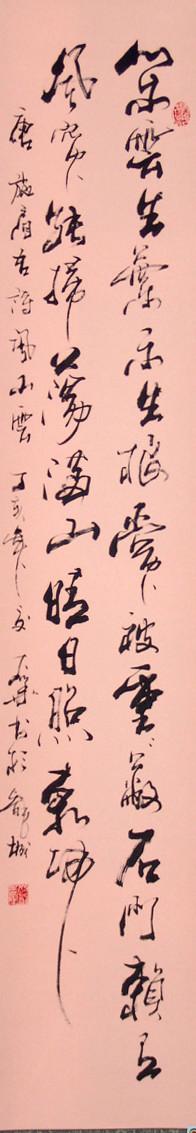 閑雲生葉不生根常被重々蔽石門賴有
風簾能掃蕩滿山晴日照乾坤
唐施肩吾詩諷山雲丁亥年之夏书於城